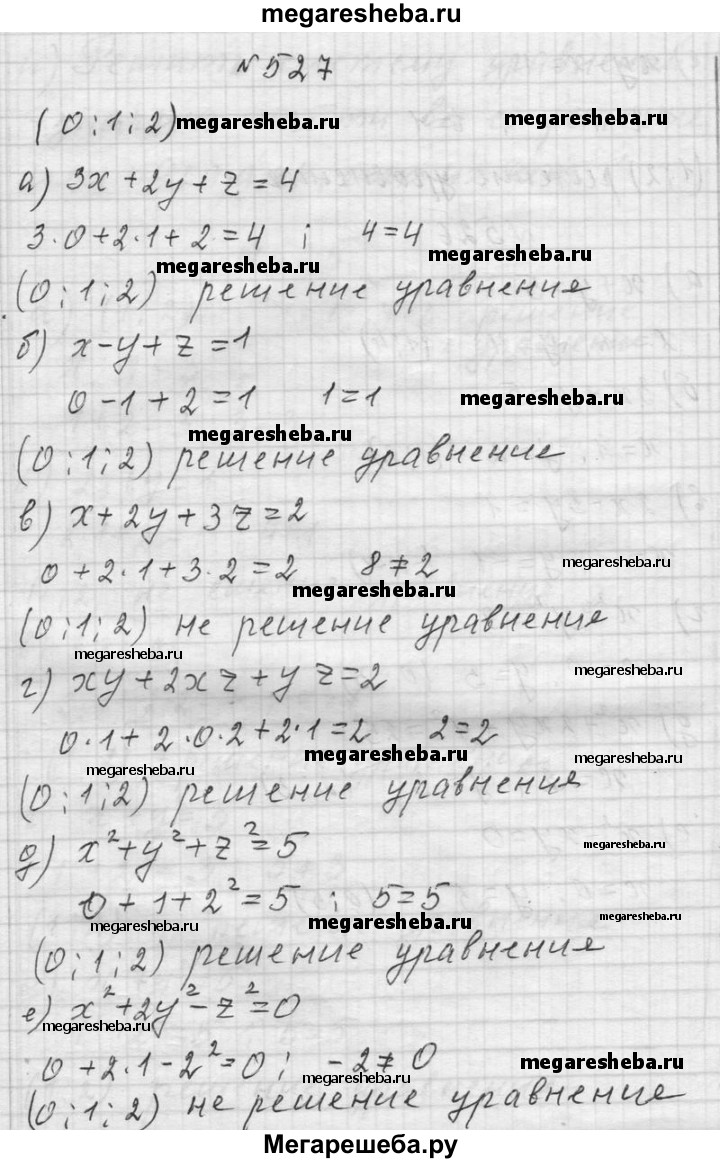 megaresheba.ru
№527
(0;1;2) megaresheba.ru megaresheba.ru
а) 3x+2y+z=4
3·0+2·1+2=4 ; 4=4
megaresheba.ru megaresheba.ru
(0;1;2) решение уравнения
б) x-y+z=1
0-1+2=1 1=1 megaresheba.ru
megaresheba.ru
(0;1;2) решение уравнение
в) x+2y+3z=2
0+2·1+3·2=2 8≠2 megaresheba.ru
megaresheba.ru
(0;1;2) не решение уравнение
megaresheba.ru megaresheba.ru
г) xy+2xz+yz=2
0·1+2·0·2+2·1=2 2=2
megaresheba.ru megaresheba.ru
(0;1;2) решение уравнения
д) x²+y²+z²=5 megaresheba.ru
0+1+2²=5 ; 5=5
megaresheba.ru megaresheba.ru megaresheba.ru
(0;1;2) решение уравнения
е) x²+2y²-z²=0
megaresheba.ru
0+2·1-2²=0; -2≠0 megaresheba.ru
megaresheba.ru
(0;1;2) не решение уравнение
Мегарешеба.ру